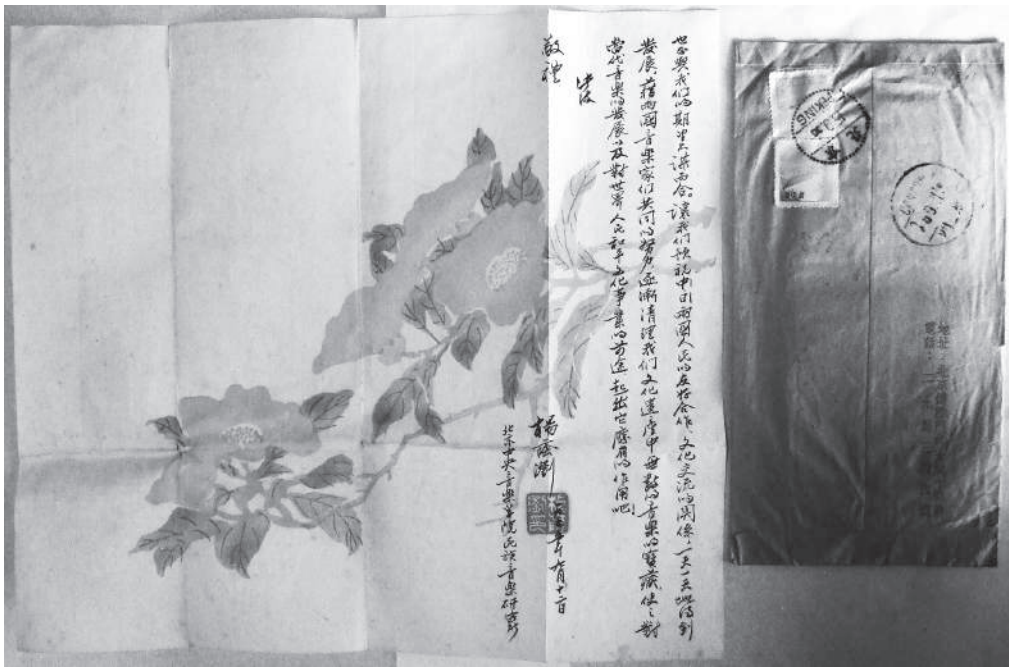 世正與我們的期望不謀而合。讓我們預祝中印兩國人民的友好合作、文化交流的關係，一天一天地得到
發展，藉兩國音樂家們共同的努力逐漸清理我們文化遺產中無數的音樂的寶藏，使之對
當代音樂的發展以及對世界人民和平文化事業的前途起我它應有的作用吧！
此致
敬禮
楊蔭瀏
年 月十二日
北京中央音樂學院民族音樂研究所
PEKING
地址
電話：